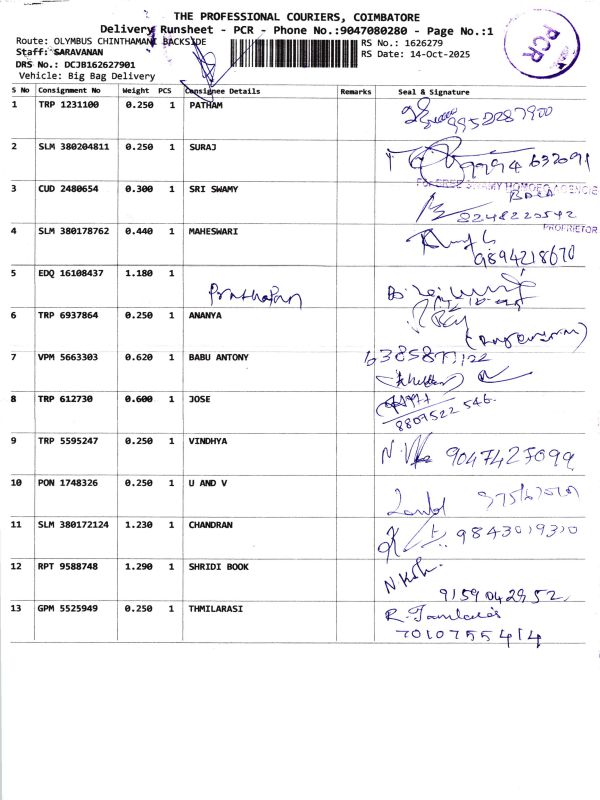 THE PROFESSIONAL COURIERS, COIMBATORE
Delivery Runsheet - PCR - Phone No.:9047080280 - Page No.:1
Route: OLYMBUS CHINTHAMANI BACKSIDE RS No.: 1626279
Staff: SARAVANAN RS Date: 14-Oct-2025
DRS No.: DCJB162627901
Vehicle: Big Bag Delivery
PCR
S No Consignment No Weight PCS Consignee Details Remarks Seal & Signature
1 TRP 1231100 0.250 1 PATHAM 9952287900
2 SLM 380204811 0.250 1 SURAJ 99994 632091
3 CUD 2480654 0.300 1 SRI SWAMY
FOR SREE SWAMY HOMOEO AGENCIES
8248220542
PROPRIETOR
4 SLM 380178762 0.440 1 MAHESWARI
9894218670
5 EDQ 16108437 1.180 1
Prathapan
6 TRP 6937864 0.250 1 ANANYA
7 VPM 5663303 0.620 1 BABU ANTONY
8 TRP 612730 0.600 1 JOSE
8809522 546
9 TRP 5595247 0.250 1 VINDHYA 9047427099
10 PON 1748326 0.250 1 U AND V
11 SLM 380172124 1.230 1 CHANDRAN 9843019310
12 RPT 9588748 1.290 1 SHRIDI BOOK
9159042952
13 GPM 5525949 0.250 1 THMILARASI
7010755414